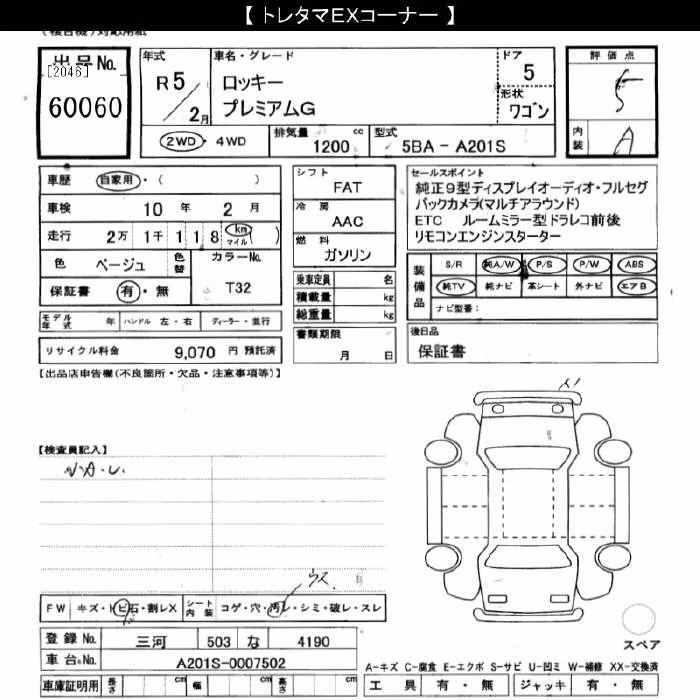 【 トレタマEXコーナー 】
(複合機)対応用紙
出品No.
[2046]
60060
年式
R5
2月
車名・グレード
ロッキー
プレミアムG
ドア
5
形状
ワゴン
評価点
5
内装
A
2WD・4WD
排気量
1200 cc
型式
5BA - A201S
車歴 自家用・( )
車検 10年 2月
走行 2万 1千 1 1 8 km マイル ( )
色 ベージュ 色替 カラーNo.
保証書 有・無 T32
シフト
FAT
冷房
AAC
燃料
ガソリン
乗車定員 名
積載量 kg
総重量 kg
書類期限
月 日
セールスポイント
純正9型ディスプレイオーディオ・フルセグ
バックカメラ(マルチアラウンド)
ETC ルームミラー型ドラレコ前後
リモコンエンジンスターター
装備品
S/R 純A/W P/S P/W ABS
純TV 純ナビ 革シート 外ナビ エアB
ナビ型番:
後日品
保証書
モデル年式 年 ハンドル 左・右 ディーラー・並行
リサイクル料金 9,070 円 預託済
【出品店申告欄(不良箇所・欠品・注意事項等)】
【検査員記入】
FW キズ・トビ石・割レX シート内装 コゲ・穴・汚レ・シミ・破レ・スレ
ウス
登録No. 三河 503 な 4190
車台No. A201S-0007502
車庫証明用 長さ cm 幅 cm 高さ cm
スペア
A-キズ C-腐食 E-エクボ S-サビ U-凹ミ W-補修 XX-交換済
工具 有・無 ジャッキ 有・無